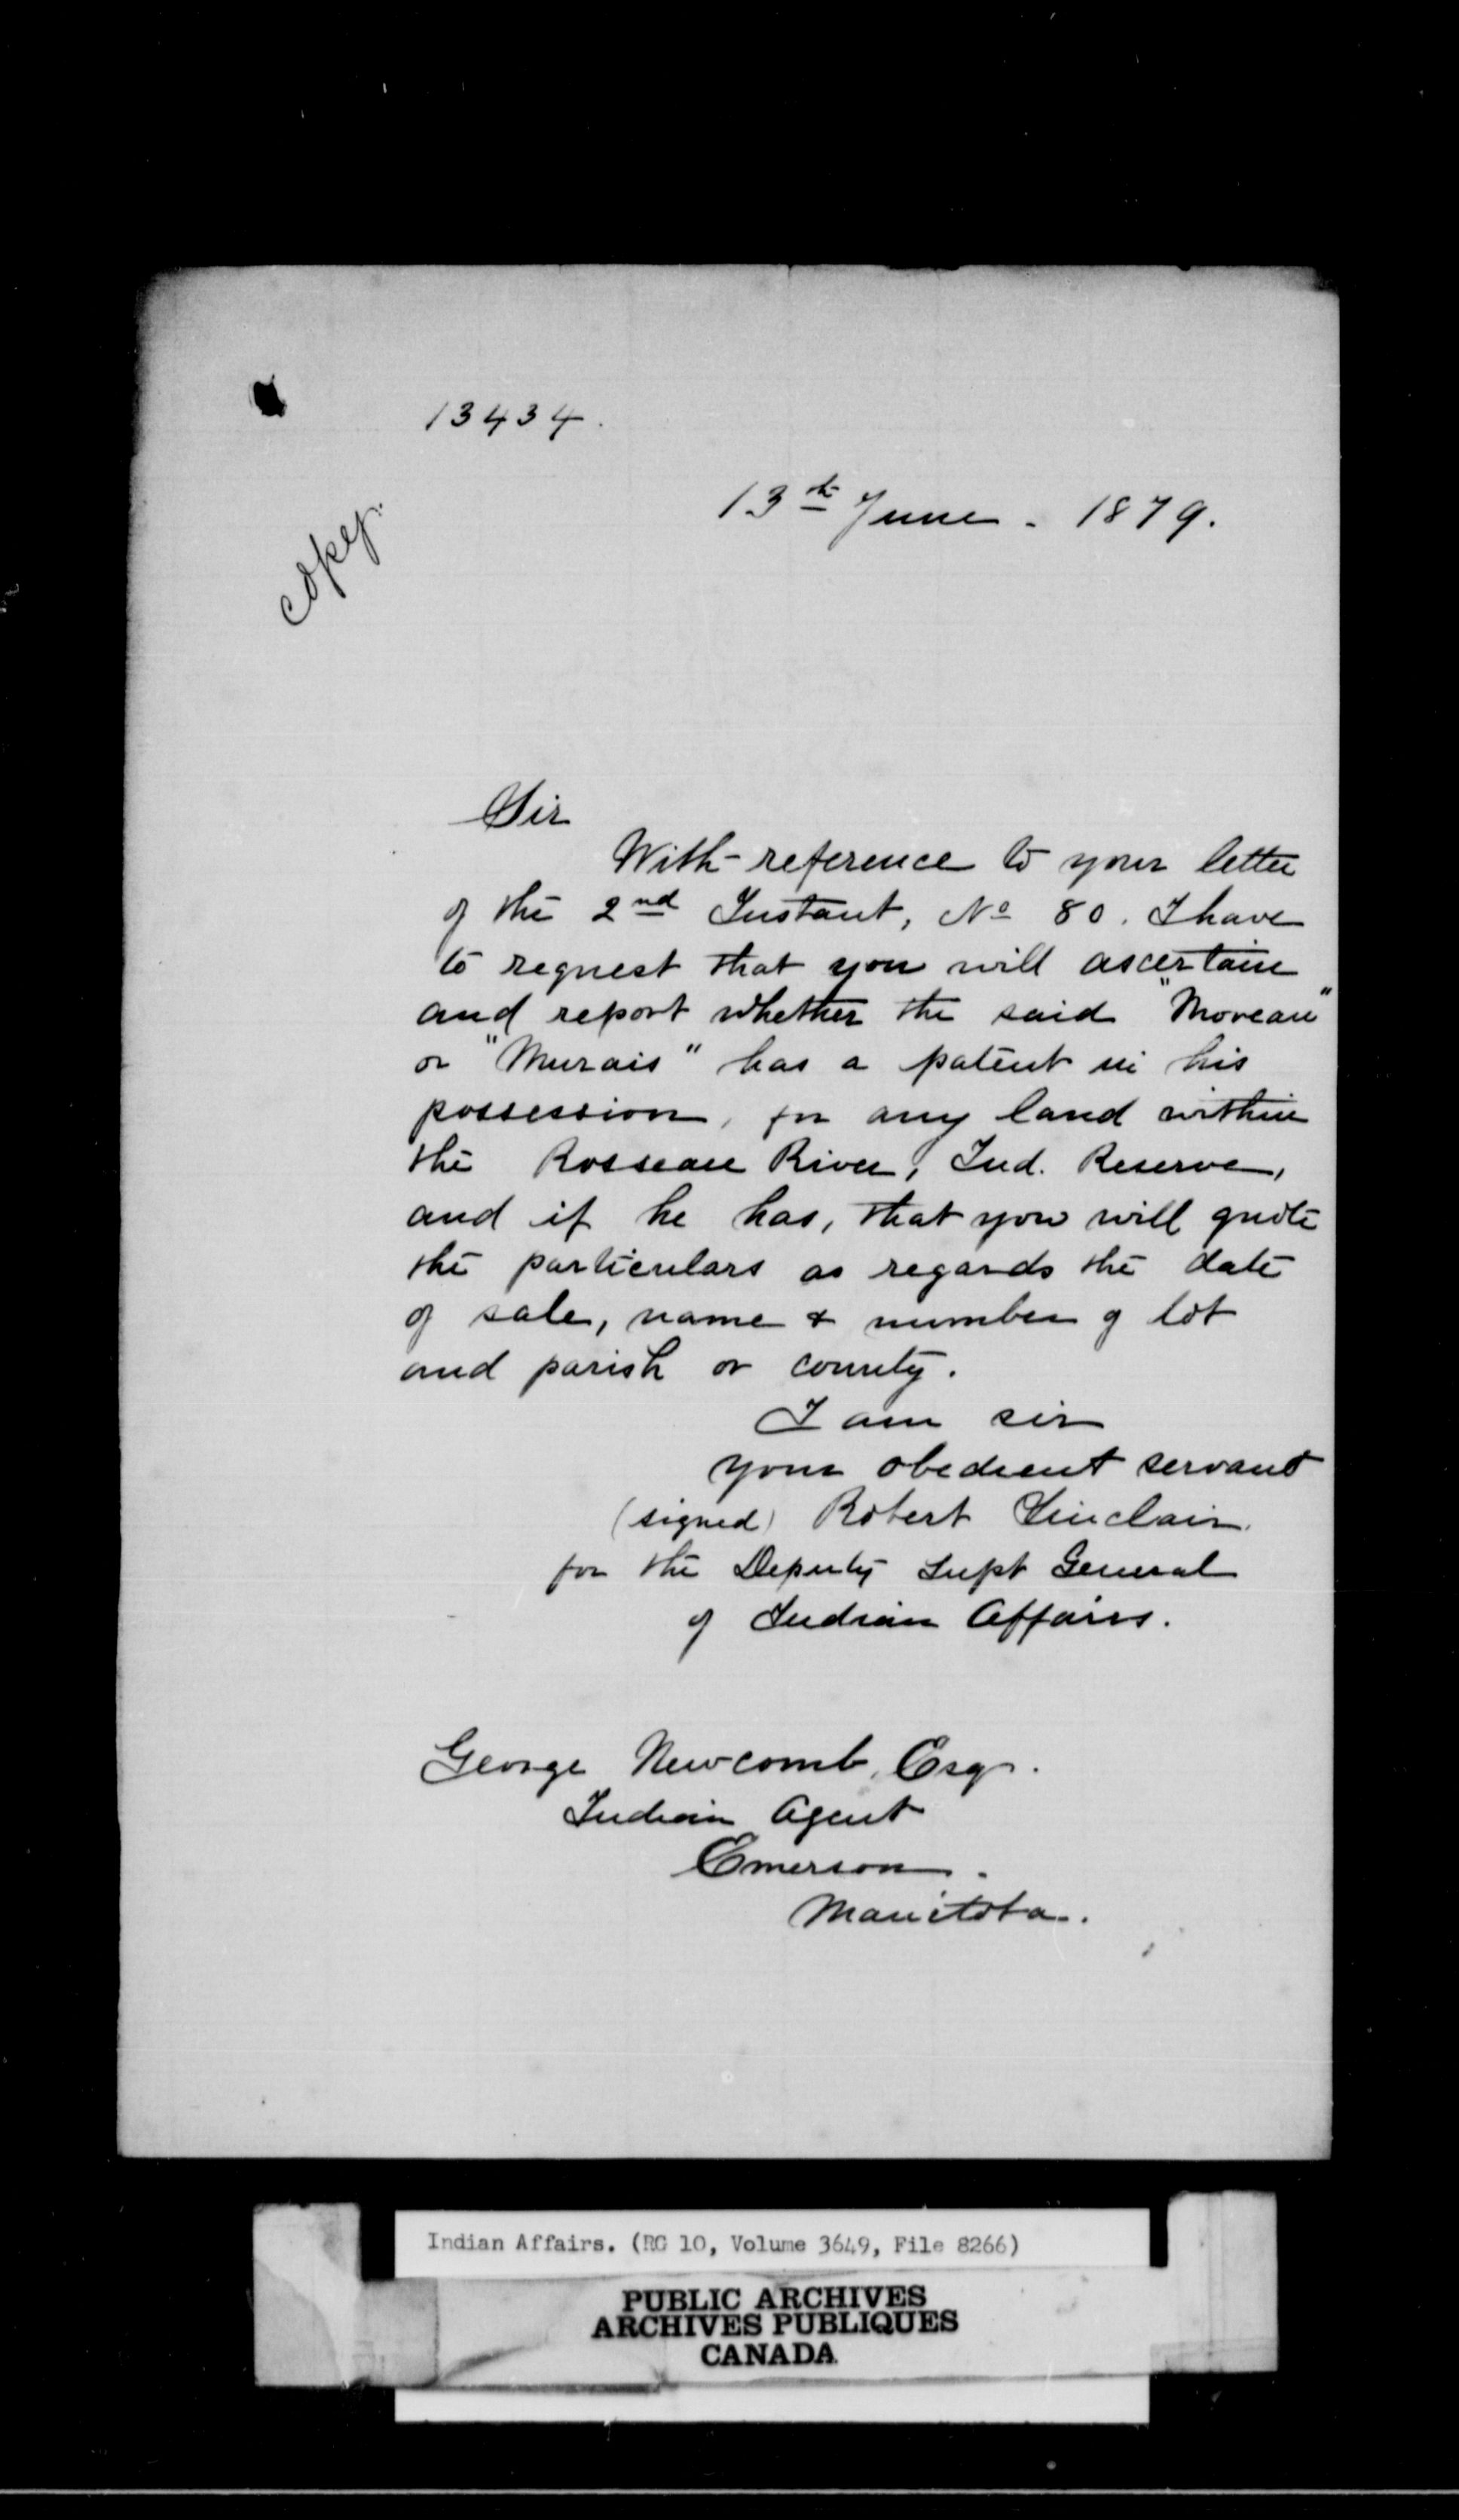 13434.
13th June - 1879.
copy.
Sir
With reference to your letter
of the 2nd Instant, No 80. I have
to request that you will ascertain
and report whether the said "Moreau"
or "Murais" has a patent in his
possession, for any land within
the Rosseau River, Ind. Reserve,
and if he has, that you will quote
the particulars as regards the date
of sale, name & number of lot
and parish or county.
I am sir
your obedient servant
(signed) Robert Sinclair.
for the Deputy Supt General
of Indian Affairs.
George Newcomb, Esqr.
Indian Agent
Emerson.
Manitoba.
Indian Affairs. (RG 10, Volume 3649, File 8266)
PUBLIC ARCHIVES
ARCHIVES PUBLIQUES
CANADA